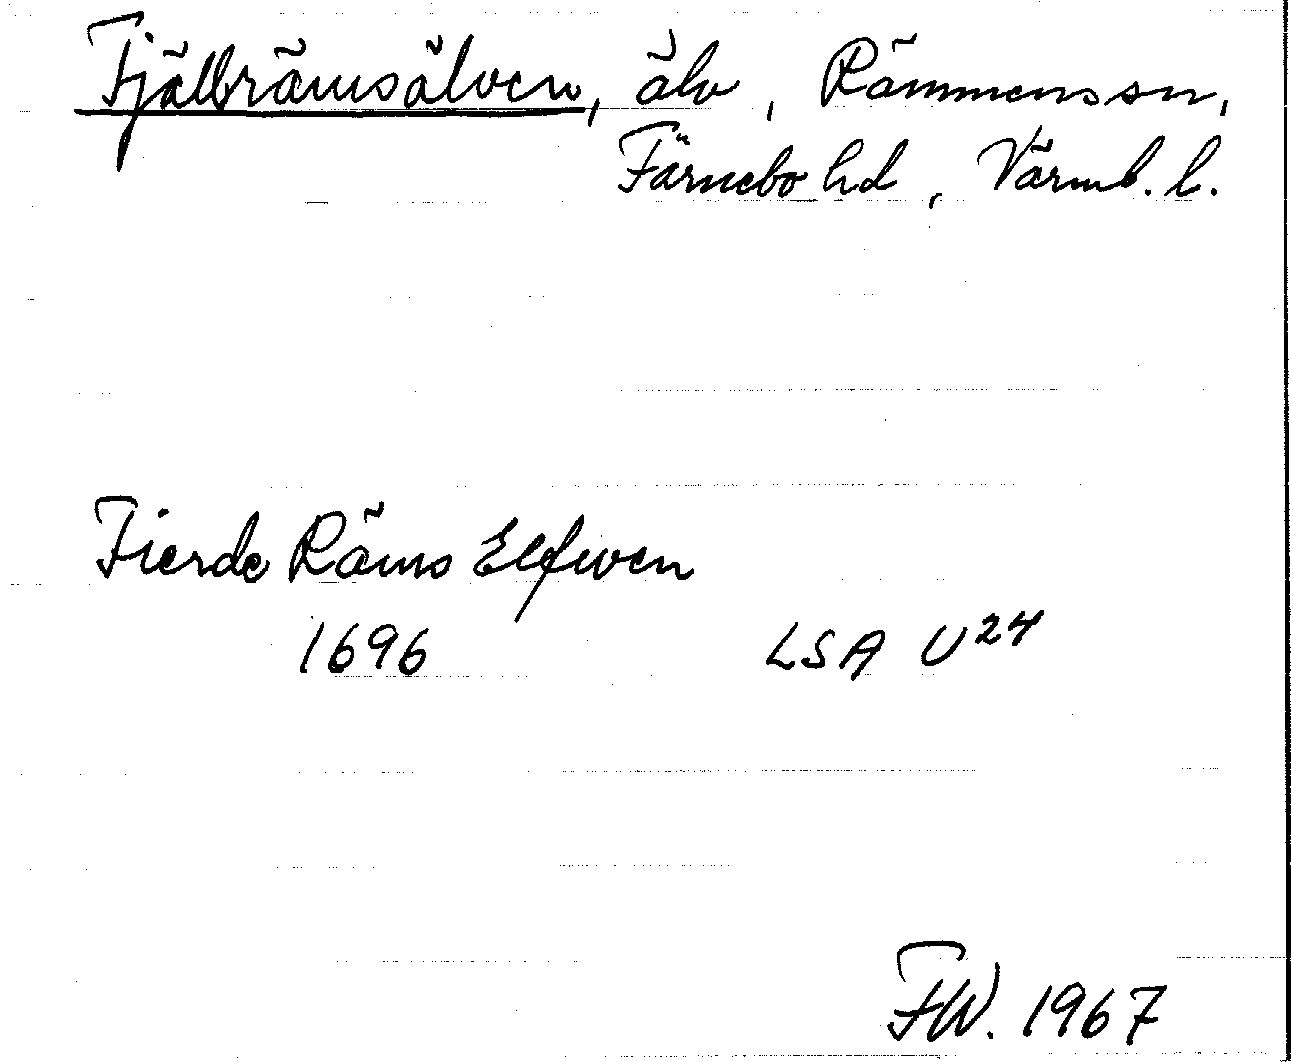 Fjällrämsälven, älv, Rämmens sn,
Färnebo hd, Värml. l.
Fierde Räms Elfwen
1696 LSA U24
FW. 1967